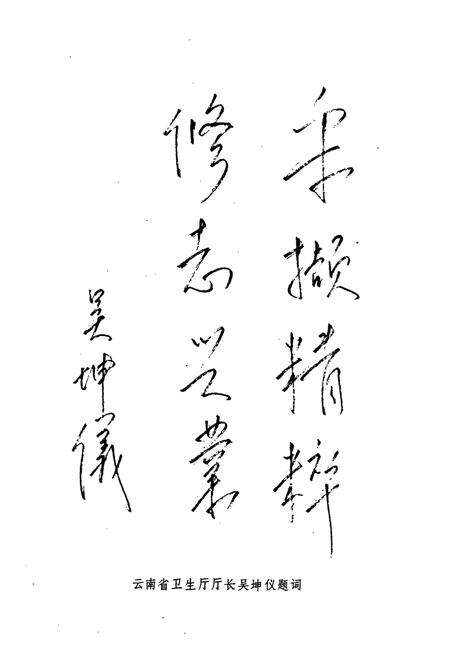 采撷精粹
修志兴业
吴坤儀
云南省卫生厅厅长吴坤仪题词